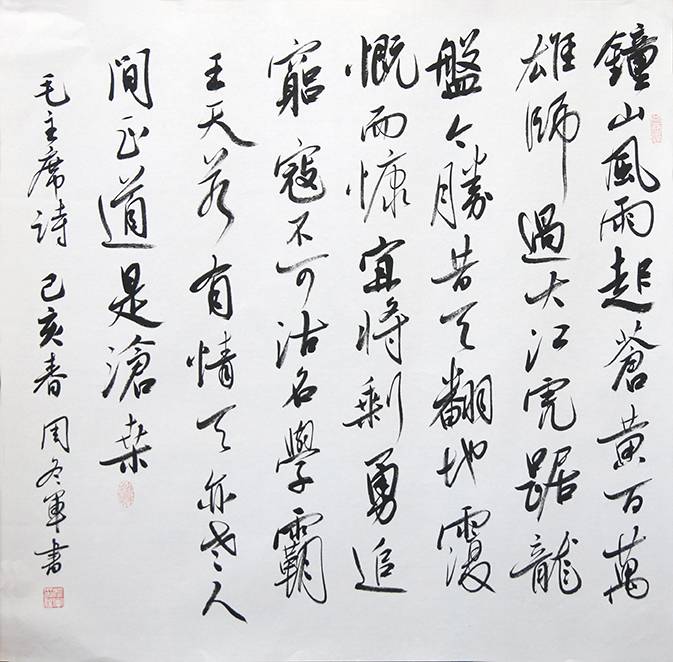 鐘山風雨起蒼黄百萬
雄師過大江虎踞龍
盤今勝昔天翻地覆
慨而慷宜將剩勇追
窮寇不可沽名學霸
王天若有情天亦老人
間正道是滄桑
毛主席诗 己亥春 周冬軍書